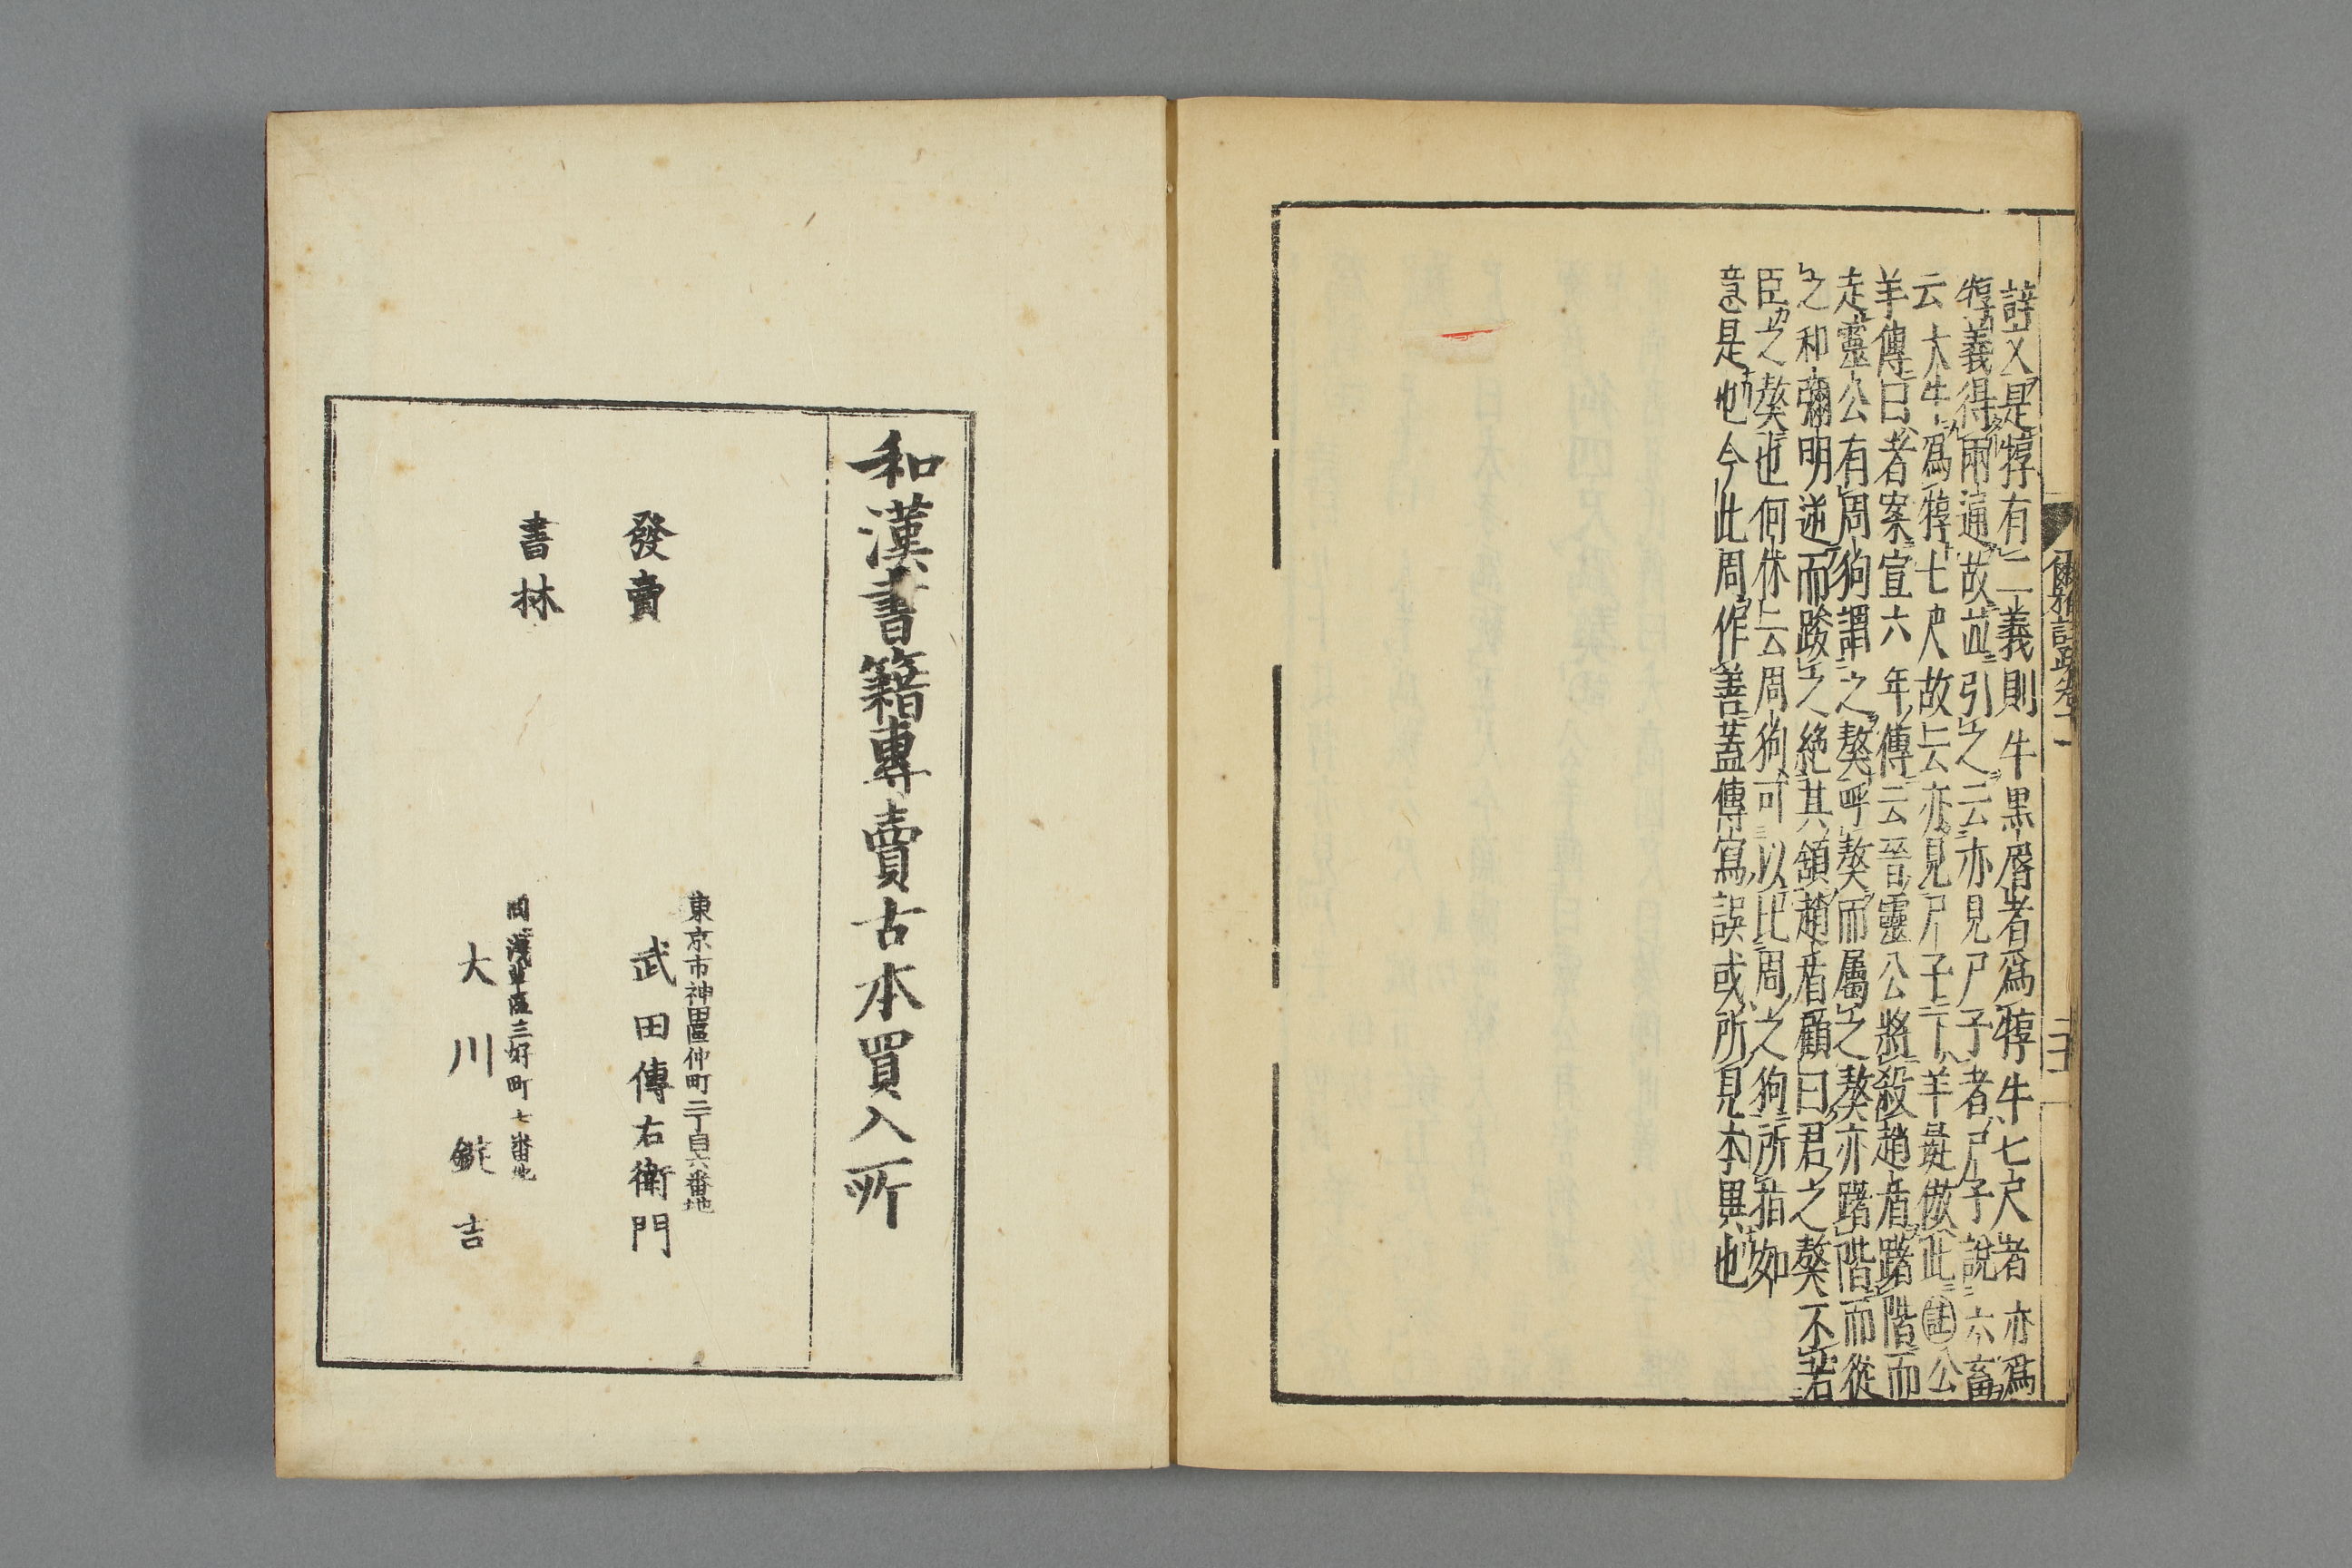 諄文是犉有二義則牛黒脣者爲犉牛七尺者亦爲
犉義得兩通故並引之云亦見尸子者尸子說六畜
云大牛爲犉七尺故云亦見尸子下羊彘倣此註公
羊傳曰者案宣六年傳云晉靈公將殺趙盾躇階而
走靈公有周狗謂之獒呼獒而屬之獒亦躇階而從
之祁彌明逆而踆之絶其頷趙盾顧曰君之獒不若
臣之獒也何休云周狗可以比周之狗所指如
意是也今此周作善蓋傳寫誤或所見本異也
爾雅註疏卷十一
和漢書籍專賣古本買入所
發賣
書林
東京市神田區仲町二丁目六番地
武田傳右衛門
同淺草區三好町七番地
大川錠吉